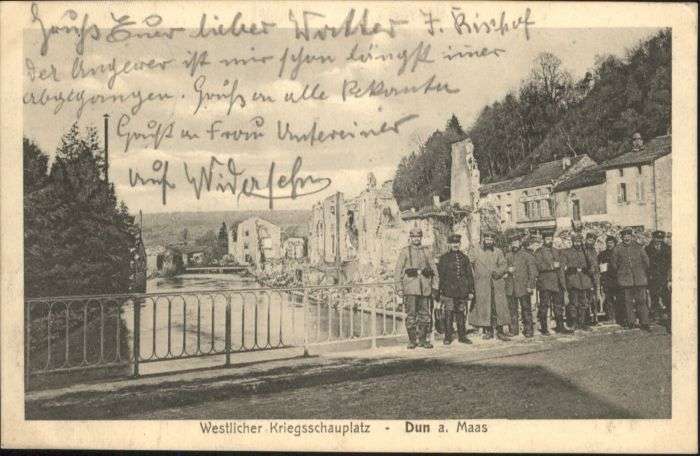 Gruß Euer lieber Watter J. Bischof
der Angerer ist mir schon längst imer
abgegangen. Gruß an alle Bekanten
Gruß an Frau Untereiner
auf Widersehn
Westlicher Kriegsschauplatz - Dun a. Maas